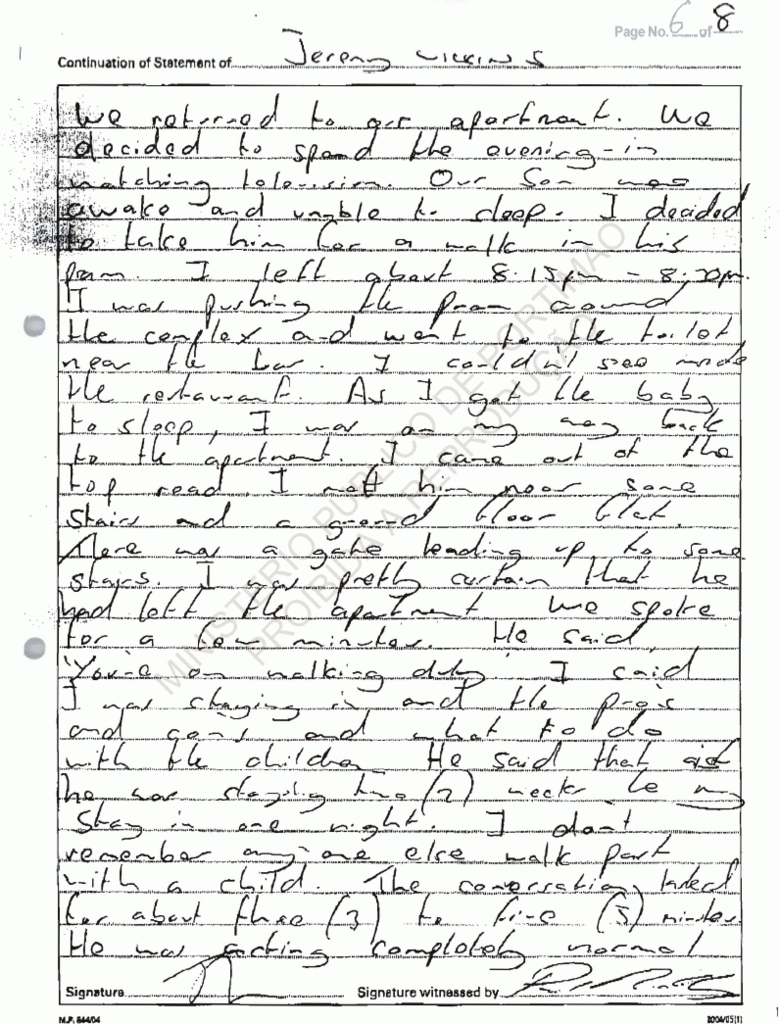 Page No. 6 of 8
Continuation of Statement of Jeremy Wilkins
We returned to our apartment. We
decided to spend the evening-in
watching television. Our Son was
awake and unable to sleep. I decided
to take him for a walk in his
pram. I left about 8.15pm - 8.30pm.
I was pushing the pram around
the complex and went to the toilet
near the bar. I couldn't see inside
the restaurant. As I got the baby
to sleep, I was on my way back
to the apartment. I came out of the
top road. I met him near some
stairs and a ground floor flat.
There was a gate leading up to some
stairs. I was pretty certain that he
had left the apartment we spoke
for a few minutes. He said,
'You're on walking duty' I said
I was staying in and the pro's
and con's and what to do
with the children He said that
he was staying two (2) weeks he may
stay in one night. I don't
remember any-one else walk past
with a child. The conversation lasted
for about three (3) to five (5) minutes.
He was acting completely normal
Signature
Signature witnessed by
M.P. 844/04
2004/05(1)
MINISTERIO PUBLICO DE PORTIMAO
PROIBIDA A REPRODUÇÃO